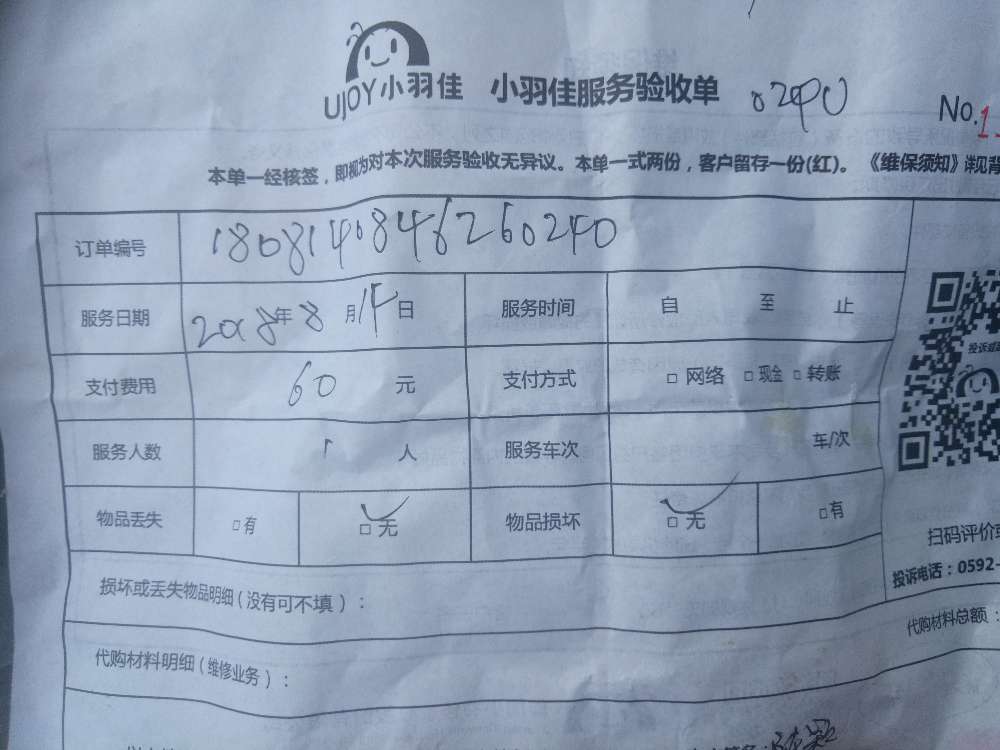 UJOY小羽佳 小羽佳服务验收单 0240 No.1
本单一经核签，即视为对本次服务验收无异议。本单一式两份，客户留存一份(红)。《维保须知》详见背
订单编号 1808140846260240
服务日期 2018年8月14日 服务时间 自 至 止
支付费用 60 元 支付方式 □ 网络 □ 现金 □ 转账
服务人数 1 人 服务车次 车/次
物品丢失 □有 □ 无 物品损坏 □ 无 □有
投诉或
扫码评价或
投诉电话：0592-
损坏或丢失物品明细（没有可不填）：
代购材料总额：
代购材料明细（维修业务）：